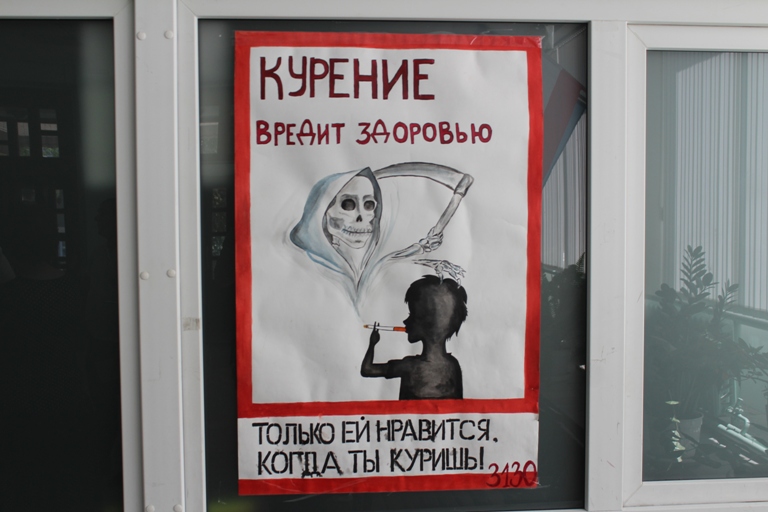 КУРЕНИЕ
ВРЕДИТ ЗДОРОВЬЮ
ТОЛЬКО ЕЙ НРАВИТСЯ.
КОГДА ТЫ КУРИШЬ!
3130